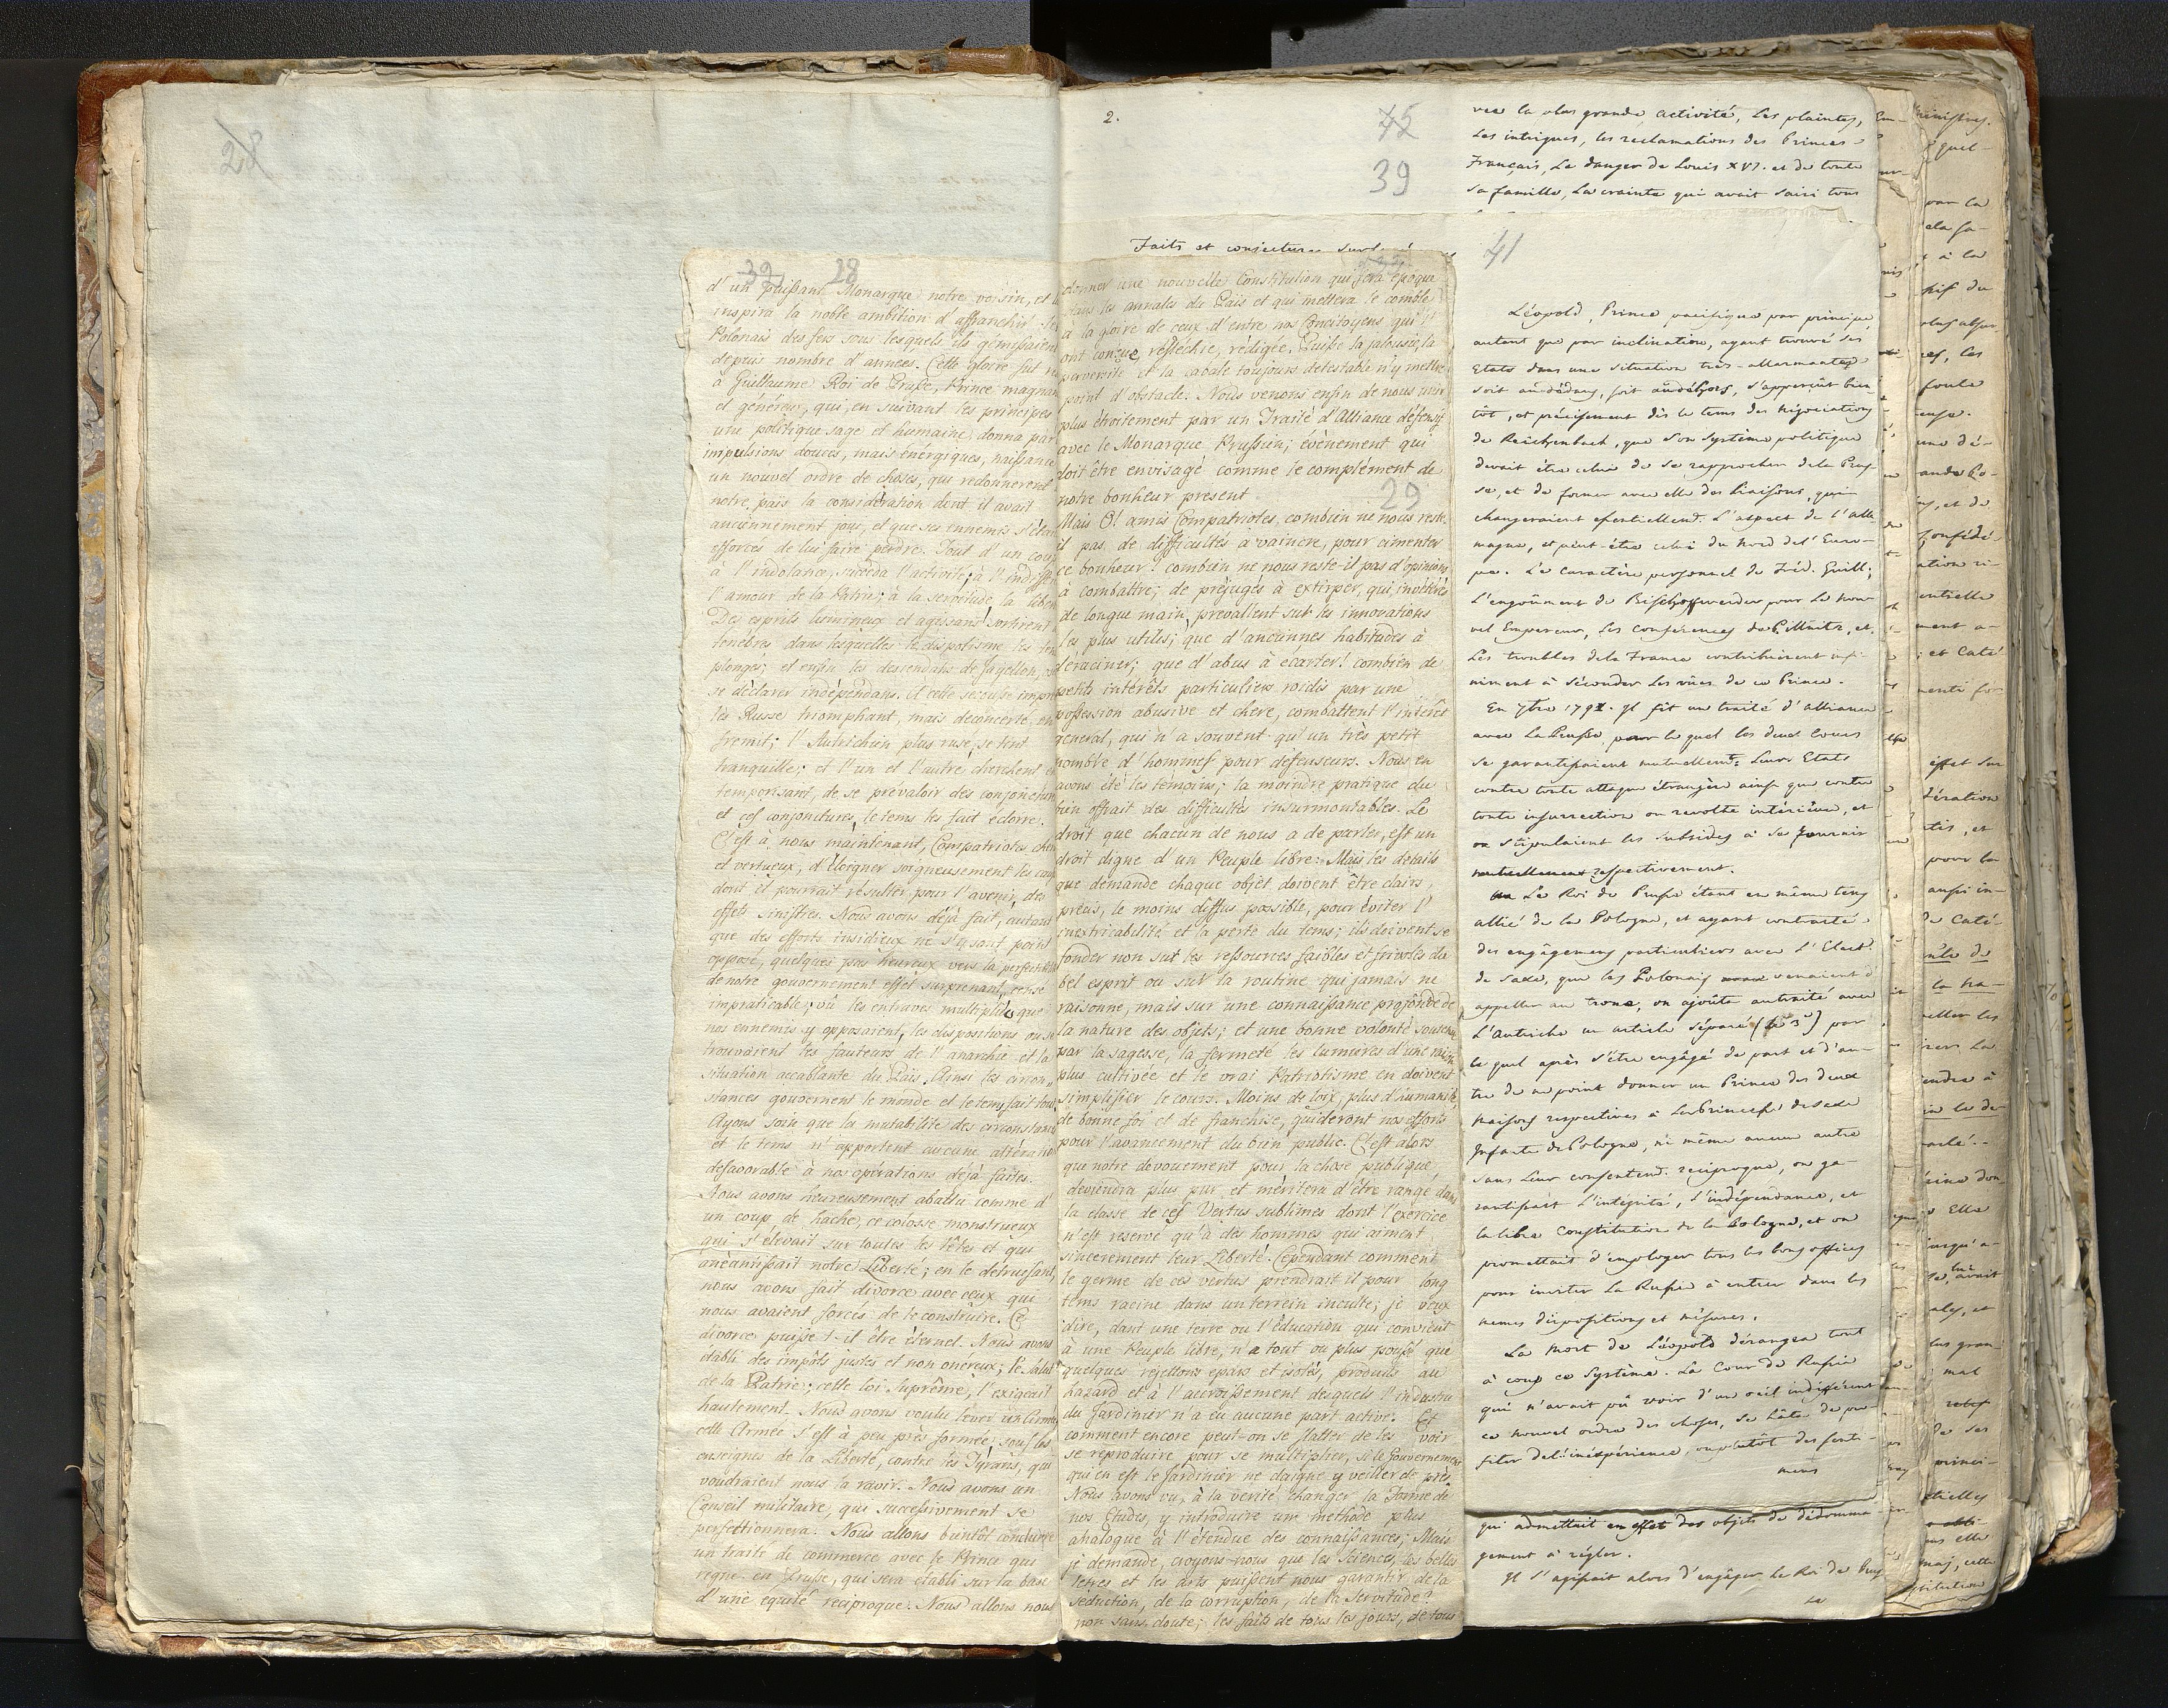 28
39 28
d'un puissant Monarque notre voisin, et lui
inspira la noble ambition d'affranchir les
Polonais des fers sous lesquels ils gemissaient
depuis nombre d'années. Cette gloire fut
à Guillaume Roi de Prusse, Prince magnan
et généreux, qui, en suivant les principes
une politique sage et humaine, donna par
impulsions douces, mais énergiques, naissance
un nouvel ordre de choses, qui redonnerent
notre païs la considération dont il avait
anciennement joui, et que ses ennemis s'étai
efforcés de lui faire perdre. Tout d'un coup
à l'indolence, succéda l'activité; à l'indiffe
l'amour de la Patrie; à la servitude la liber
Des esprits lumineux et agissans sortirent
tenebres dans lesquelles le despotisme les
plongés; et enfin les descendans de Jagellon,
se déclarer indépendans. A cette secousse impré
les Russe triomphant, mais deconcerté, en
fremit; l'Autrichien plus rusé, se tint
tranquille; et l'un et l'autre cherchent en
temporisant, de se prévaloir des conjonctures
et ces conjonctures, le tems les fait éclorre.
C'est à nous maintenant, Compatriotes chers
et vertueux, d'éloigner soigneusement les cau
dont il pourrait résulter pour l'avenir, des
effets sinistres. Nous avons déjà fait, autant
que des efforts insidieux ne s'y sont point
opposé, quelques pas heureux vers la perfectibilité
de notre gouvernement effet surprenant, censé
impraticable; où les entraves multipliés que
nos ennemis y opposaient, les dispositions ou se
trouvaient les fauteurs de l'anarchie et la
situation accablante du Païs. Ainsi les circon-
stances gouvernent le monde et le tems fait tout.
Ayons soin que la mutabilité des circonstances
et le tems n'apportent aucune altération
defavorable à nos opérations déjà faites.
Nous avons heureusement abattu comme d'
un coup de hache, ce colosse monstrueux
qui s'élevait sur toutes les têtes et qui
anéantissait notre Liberté; en le détruisant,
nous avons fait divorce avec ceux qui
nous avaient forcés de le construire. Ce
divorce puisse t-il être éternel. Nous avons
établi des impôts justes et non onéreux; le salut
de la Patrie; cette loi Suprême, l'exigeait
hautement. Nous avons voulu lever une Armée
cette Armée s'est à peu près formée, sous les
enseignes de la Liberté, contre les Tyrans, qui
voudraient nous la ravir. Nous avons un
Conseil militaire, qui successivement se
perfectionnera. Nous allons bientôt conclure
un traité de commerce avec le Prince qui
regne en Prusse, qui sera établi sur la base
d'une équité reciproque. Nous allons nous
2.
45
39
Faits et conjectures sur
donner une nouvelle Constitution qui fera époque
dans les annales du Païs et qui mettera le comble
à la gloire de ceux d'entre nos Concitoyens qui l'
ont conçue, réfléchie, rédigée. Puisse la jalousie, la
perversité et la cabale toujours detestable n'y mettre
point d'obstacle. Nous venons enfin de nous unir
plus étroitement par un Traité d'Alliance défensif
avec le Monarque Prussien; évènement qui
doit être envisagé comme le complément de
notre bonheur present.
29
Mais O! amis Compatriotes, combien ne nous reste-
il pas de difficultés à vaincre, pour cimenter
ce bonheur! combien ne nous reste-il pas d'opinions
à combattre; de préjugés à extirper, qui, invétérés
de longue main, prevallent sur les innovations
les plus utiles; que d'anciennes habitudes à
déraciner; que d'abus à écarter! combien de
petits intérêts particuliers roidis par une
possession abusive et chere, combattent l'intérêt
général, qui n'a souvent qu'un très petit
nombre d'hommes pour defenseurs. Nous en
avons été les témoins; la moindre pratique du
bien offrait des difficultés insurmontables. Le
droit que chacun de nous a de parler, est un
droit digne d'un Peuple libre: Mais les details
que demande chaque objet doivent être clairs,
précis, le moins diffus possible, pour éviter l'
inextricabilité et la perte du tems; ils doivent se
fonder non sur les ressources faibles et frivoles du
bel esprit ou sur la routine qui jamais ne
raisonne, mais sur une connaissance profonde de
la nature des objets; et une bonne volonté soutenue
par la sagesse, la fermeté les lumières d'une raison
plus cultivée et le vrai Patriotisme en doivent
simplifier le cours. Moins de loix, plus d'humanité,
de bonne foi et de franchise, guideront nos efforts
pour l'avancement du bien public. C'est alors
que notre devouement pour la chose publique,
deviendra plus pur et méritera d'être rangé dans
la classe de ces Vertus sublimes dont l'exercice
n'est reservé qu'à des hommes qui aiment
sincerement leur Liberté. Cependant comment
le germe de ces vertus prendrait il pour long
tems racine dans un terrein inculte; je veux
dire, dant une terre ou l'éducation qui convient
à une Peuple libre, n'a tout ou plus poussé que
quelques rejettons épars et isolés, produits au
hazard et à l'accroissement desquels l'industrie
du Jardinier n'a eu aucune part active. Et
comment encore peut-on se flatter de les voir
se reproduire pour se multiplier, si le Gouvernement
qui en est le Jardinier ne daigne y veiller de près.
Nous avons vu, à la verité, changer la Forme de
nos Etudes, y introduire une méthode plus
analogue à l'étendue des connaissances; Mais
je demande, croyons-nous que les Sciences, les belles
lettres et les arts puissent nous garantir de la
séduction, de la corruption, de la Servitude?
non sans doute; les faits de tous les jours, de tous
vec la plus grande activité, Les plaintes,
Les intrigues, les reclamations des Princes
Français, Le danger de Louis XVI. et de toute
sa famille, La crainte qui avait saisi tous
41
Léopold, Prince pacifique par principe
autant que par inclination, ayant trouvé ses
Etats dans une situation très-allarmante
soit au-dedans, soit au-dehors, s'apperçut bien
tôt, et précisement dès le tems des négociations
de Reichenbach, que son Système politique
devait être celui de se rapprocher de la Prus-
se, et de former avec elle des liaisons, qui
changeraient essentiellemt. L'aspect de l'Alle-
magne, et peut-être celui du Nord de l'Euro-
pe. Le Caractère personnel de Fréd. Guill;
L'engoûment de Bischoffwerder pour Le nou-
vel Empereur, Les Conférences de Pillnitz, et
Les troubles de la France contribuèrent infi-
niment à séconder Les vües de ce Prince.
En 7bre 1791. Il fit un traité d'alliance
avec La Prusse, par le quel les deux Cours
se garantissaient mutuellemt. Leurs Etats
contre toute attaque étrangère ainsi que contre
toute insurrection ou revolte intérieure, et
on stipulaient les subsides à se fournir
mutuellement respectivement.
Le Roi de Prusse étant en même tems
allié de la Pologne, et ayant contracté
des engagemens particuliers avec l'Elect.
de Saxe, que les Polonais venaient d'
appeller au trone, on ajoûta au traité avec
L'Autriche un article séparé (le 3e) par
le quel après s'être engagé de part et d'au-
tre de ne point donner un Prince des deux
Maisons respectives à La Princesse de Saxe
Infante de Pologne, ni même aucun autre
sans Leur consentemt. reciproque, on ga-
rantissait L'integrité, L'indépendance, et
la libre Constitution de la Pologne, et on
promettait d'employer tous les bons offices
pour inviter La Russie à entrer dans les
memes dispositions et mésures.
La Mort de Léopold dérangea tout
à coup ce Système. La Cour de Russie
qui n'avait pû voir d'un oeil indifférent
ce nouvel ordre des choses, se hâta de pro-
fiter de l'inexpérience, ou plutôt des senti-
mens
qui admettait en effet des objets de dédomma-
gement à régler.
Il s'agissait alors d'engager Le Roi de Prus
se